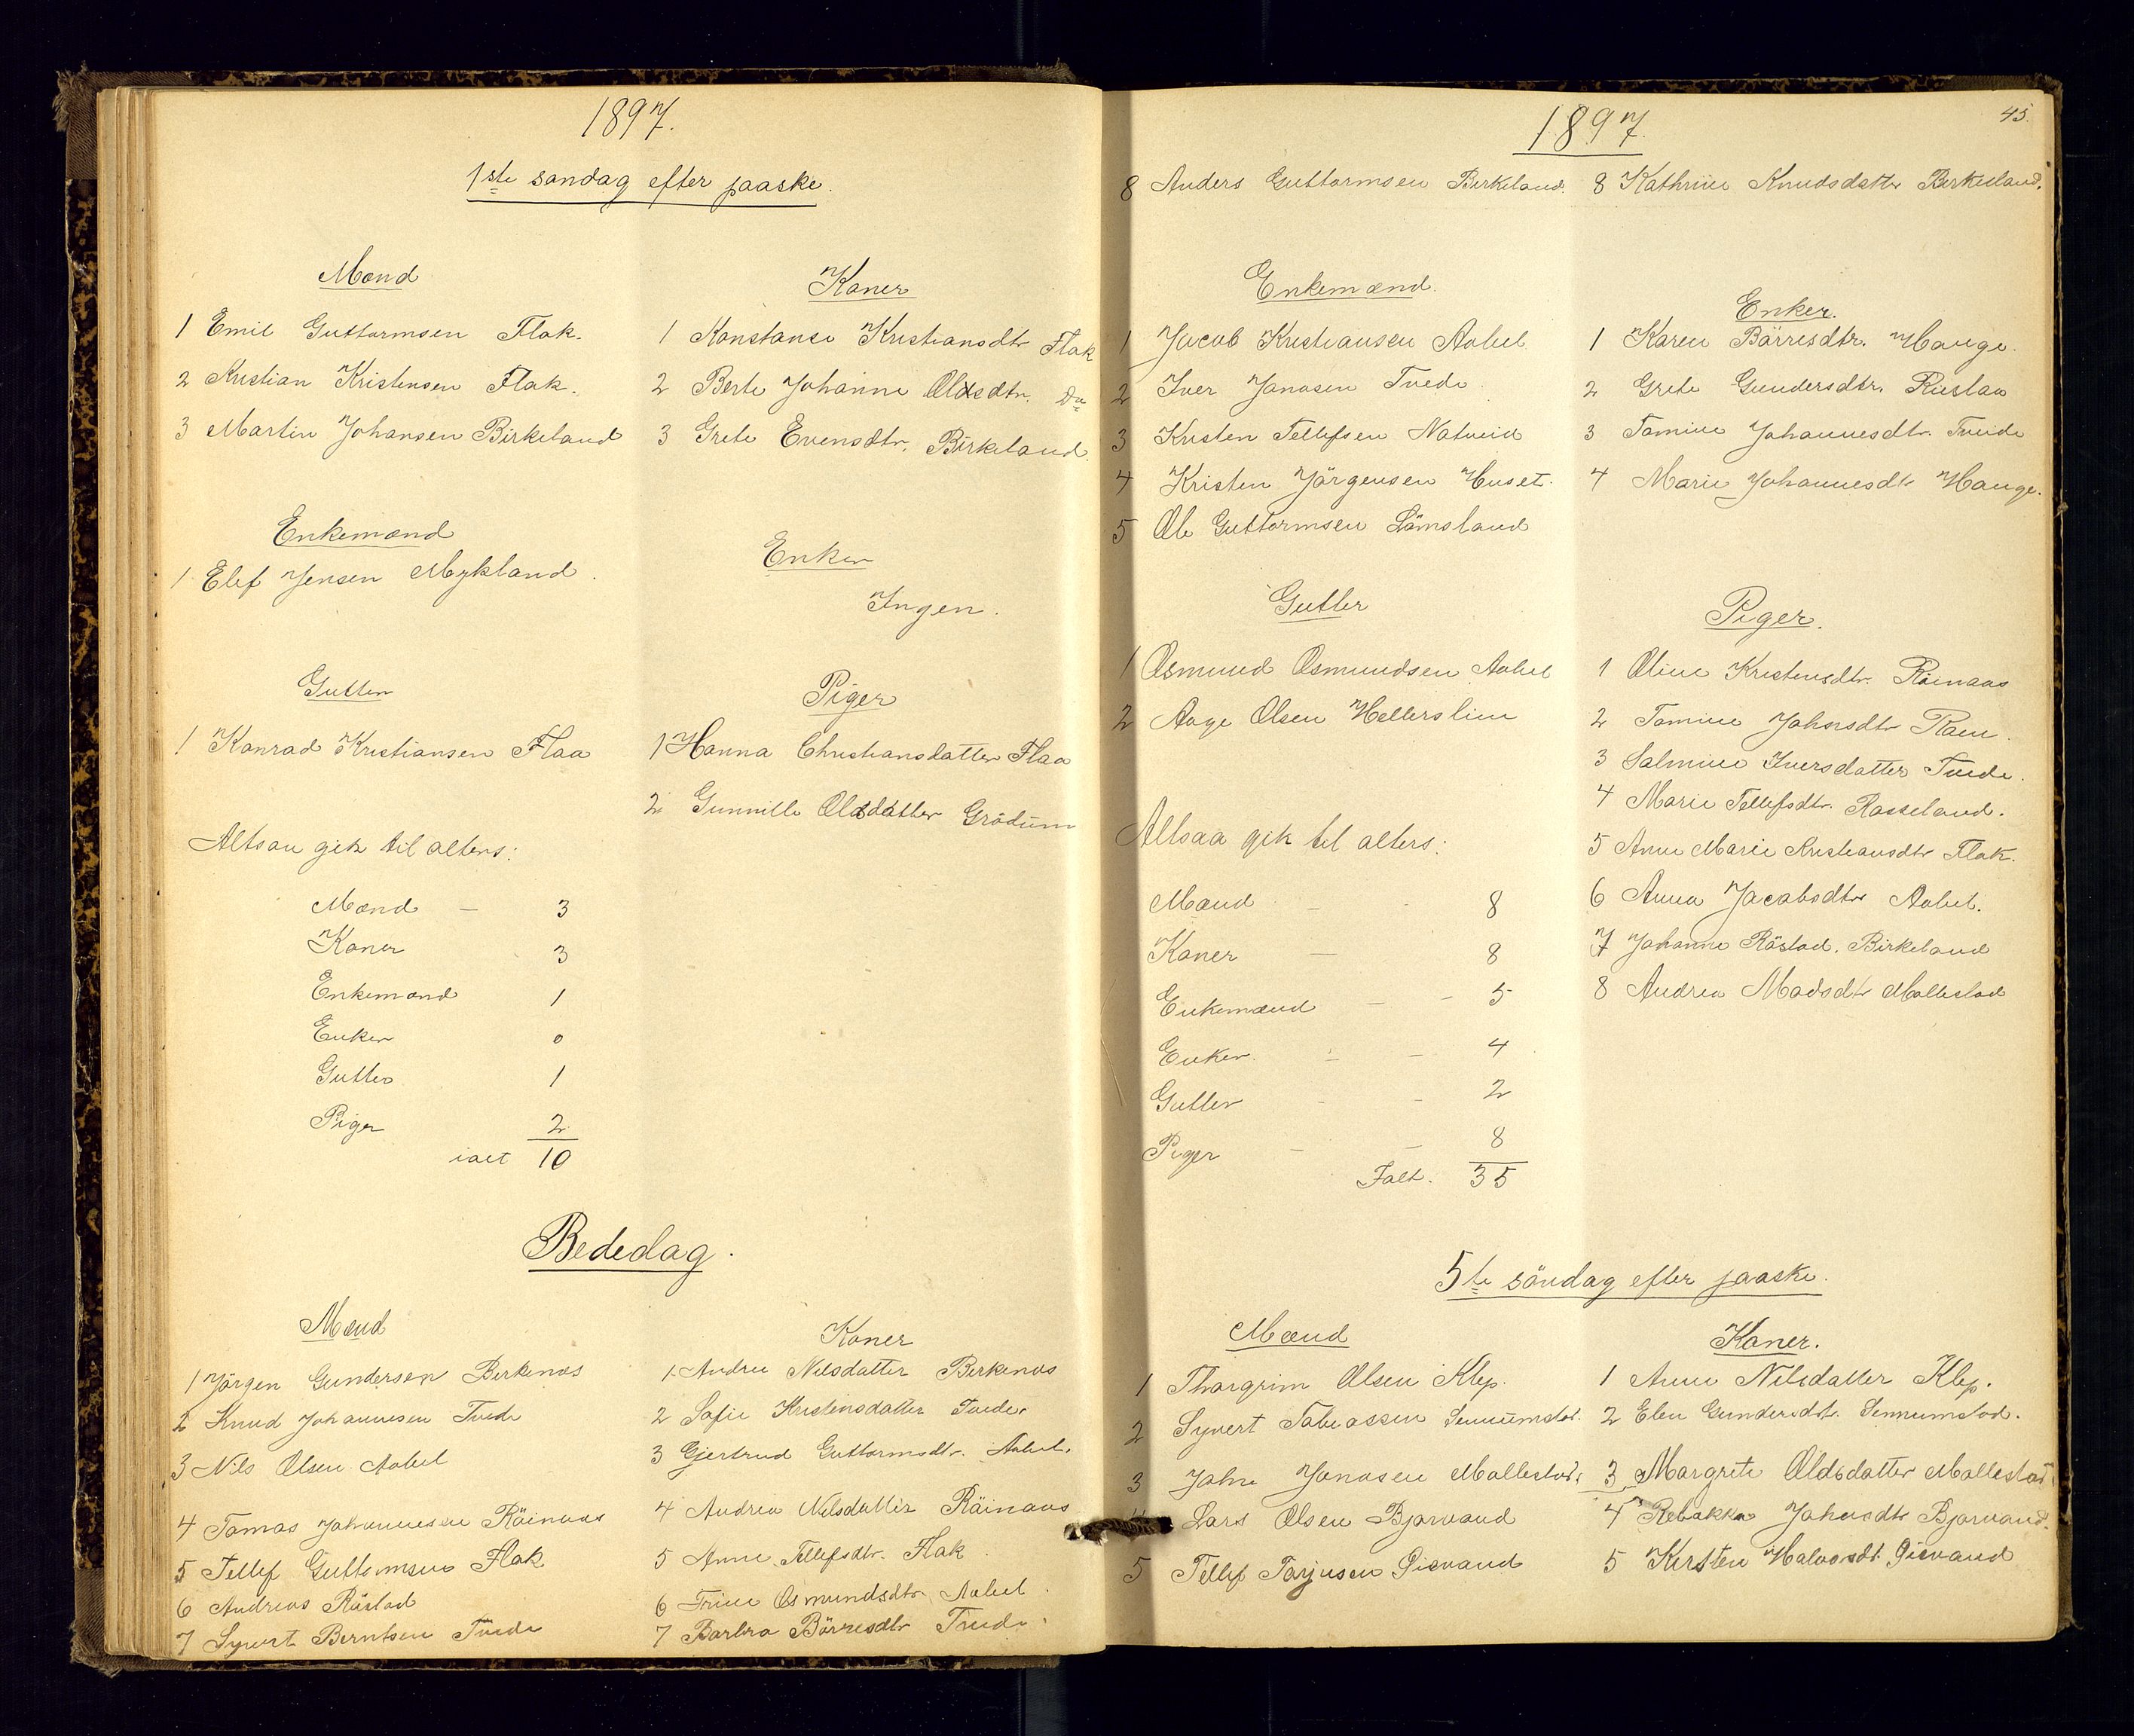 1897.
1ste søndag efter paaske.
Mænd
1 Emil Guttormsen Flak.
2 Kristian Kristensen Flak.
3 Martin Johansen Birkeland
Koner
1 Konstanse Kristiansdtr Flak
2 Berte Johanne Olsdtr. Do
3 Grete Evensdtr. Birkeland.
Enkemænd
1 Elef Jensen Mykland.
Enker
Ingen.
Gutter
1 Konrad Kristiansen Flaa
Piger
1 Hanna Christiansdatter Flaa
2 Gunnille Olsdatter Grödum
Altsaa gik til alters:
Mænd – 3
Koner 3
Enkemænd 1
Enker 0
Gutter 1
Piger 2
ialt 10
Bededag.
Mænd
1 Jörgen Gundersen Birkenæs
2 Knud Johannesen Tvede
3 Nils Olsen Aabel
4 Tomas Johannesen Räinaas
5 Tellef Guttormsen Flak
6 Andreas Röstad
7 Syvert Berntsen Tvede
Koner
1 Andrea Nilsdatter Birkenæs
2 Sofie Kristensdatter Tvede.
3 Gjertrud Guttormsdtr. Aabel.
4 Andrea Nilsdatter Räinaas
5 Anne Tellefsdtr. Flak
6 Trine Osmundsdtr Aabel.
7 Barbra Börresdtr Tvede.
1897.
45.
8 Anders Guttormsen Birkeland.
8 Kathrine Knudsdatter Birkeland.
Enkemænd.
1 Jacob Kristiansen Aabel
2 Iver Jonasen Tvede.
3 Kristen Tellefsen Natveid
4 Kristen Jörgensen Huset.
5 Ole Guttormsen Lömsland
Enker.
1 Karen Börresdtr. Hauge.
2 Grete Gundersdtr. Rislaa
3 Tomine Johannesdtr. Tveide
4 Marie Johannesdtr Hauge.
Gutter
1 Osmund Osmundsen Aabel
2 Aage Olsen Hellerslien
Piger.
1 Oline Kristensdtr. Räinaas
2 Tomine Johnsdtr Raen.
3 Salmine Iversdatter Tveide.
4 Marie Tellefsdtr. Rosseland.
5 Anne Marie Kristiansdtr Flak.
6 Anna Jacobsdtr Aabel.
7 Johanne Röstad. Birkeland
8 Andrea Madsdtr Mollestad
Altsaa gik til alters:
Mænd – 8
Koner – 8
Enkemænd – – 5
Enker. – – 4
Gutter – – 2
Piger – – 8
Ialt. 35
5te söndag efter paaske.
Mænd
1 Thorgrim Olsen Klep.
2 Syvert Tobiassen Sennumstad.
3 John Jonasen Mollestad.
4 Lars Olsen Bjorvand
5 Tellef Terjusen Oievand
Koner.
1 Anne Nilsdatter Klep.
2 Elen Gundersdtr. Sennumstad.
3 Margrete Oldsdatter Mollestad
4 Rebakka Johnsdtr Bjorvand.
5 Kirsten Halvorsdt. Oievand